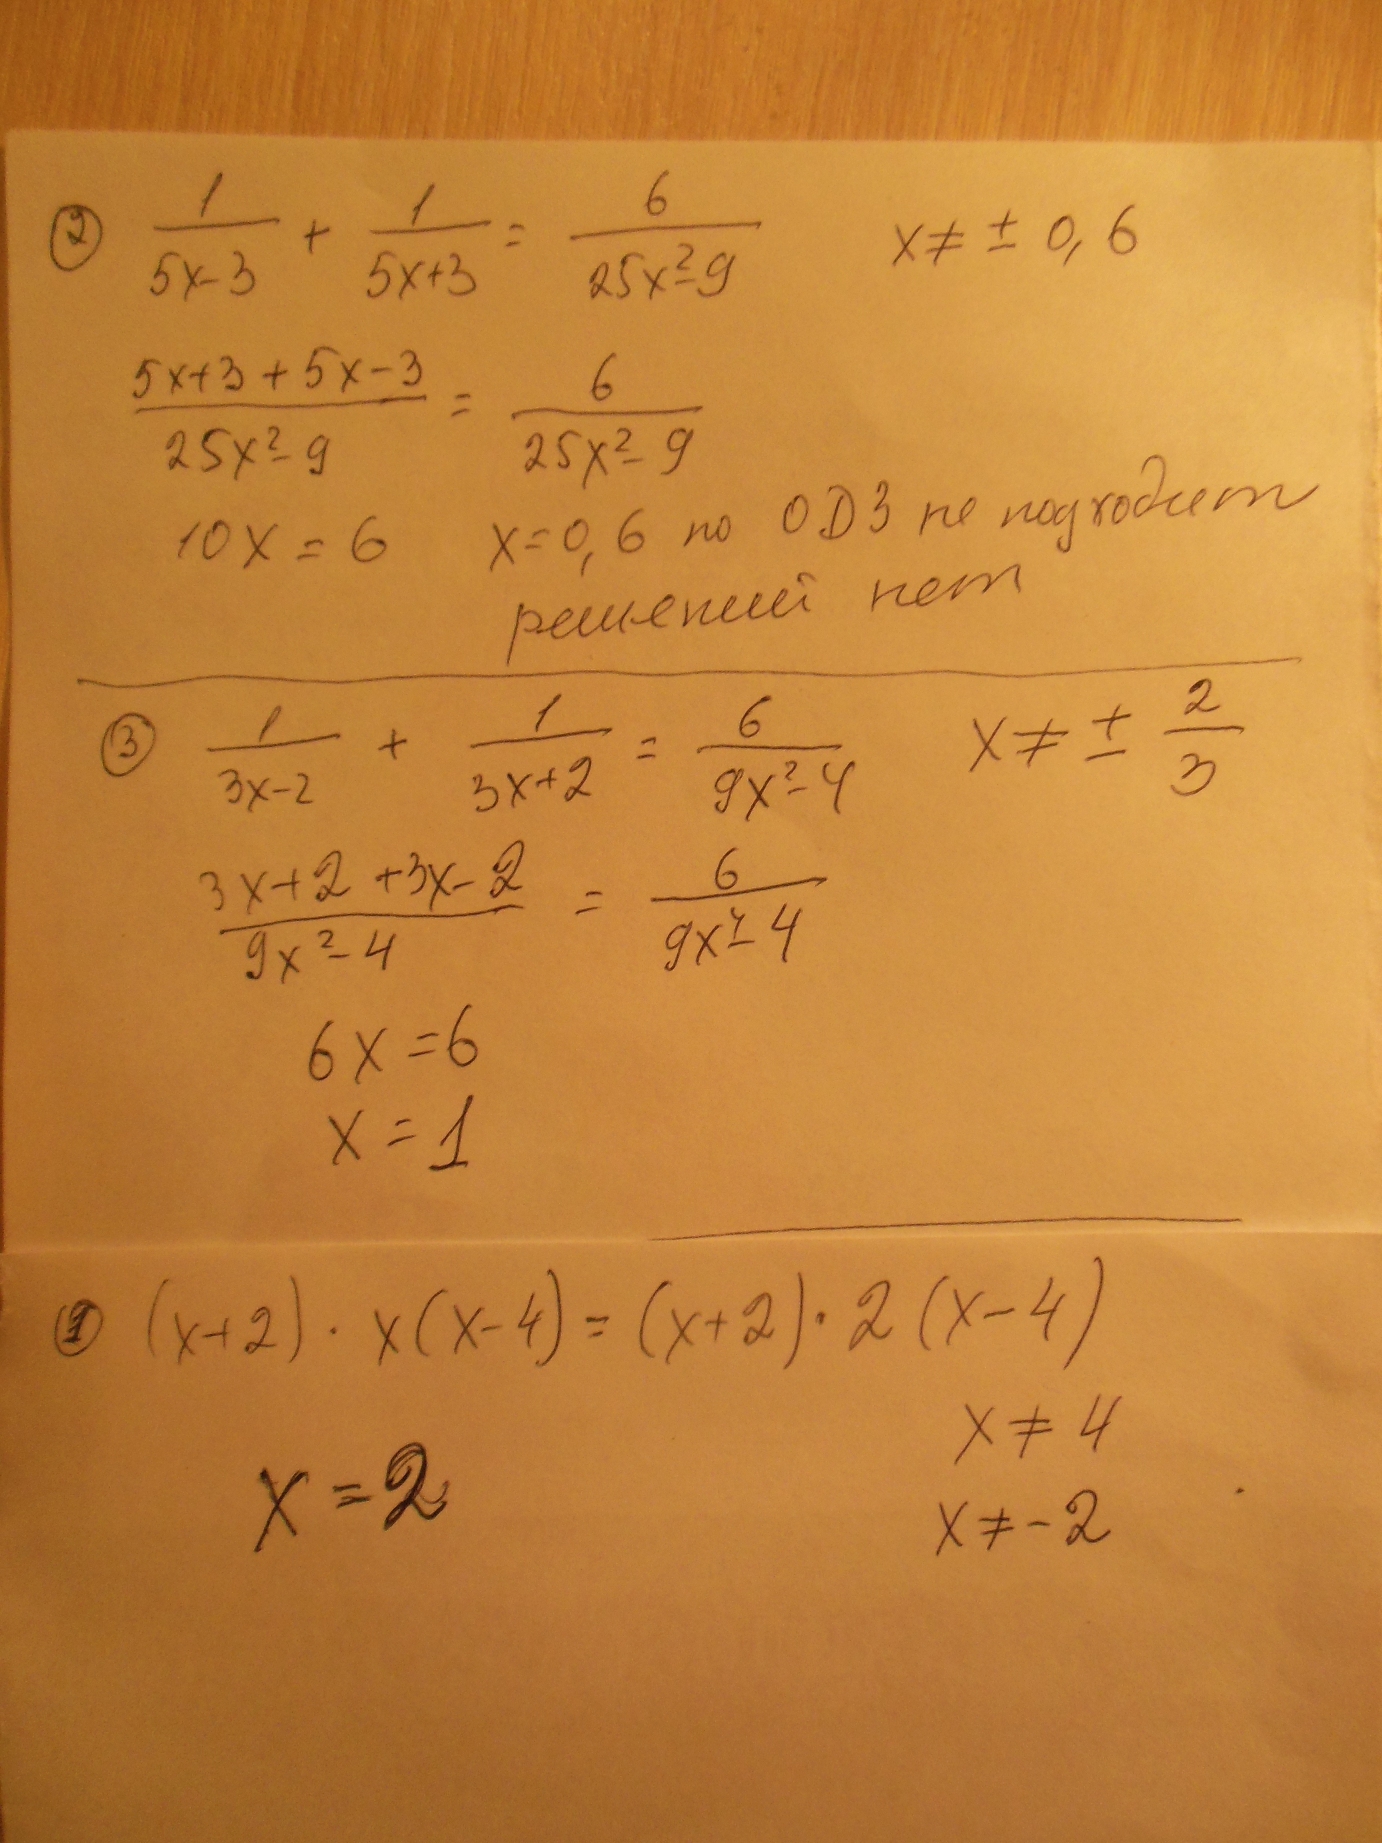 ② 1/(5x-3) + 1/(5x+3) = 6/(25x²-9) x ≠ ± 0,6
(5x+3+5x-3)/(25x²-9) = 6/(25x²-9)
10x = 6 x=0,6 по ОДЗ не подходит
решений нет
③ 1/(3x-2) + 1/(3x+2) = 6/(9x²-4) x ≠ ± 2/3
(3x+2+3x-2)/(9x²-4) = 6/(9x²-4)
6x = 6
x = 1
① (x+2)·x(x-4) = (x+2)·2(x-4)
x ≠ 4
x = 2
x ≠ -2